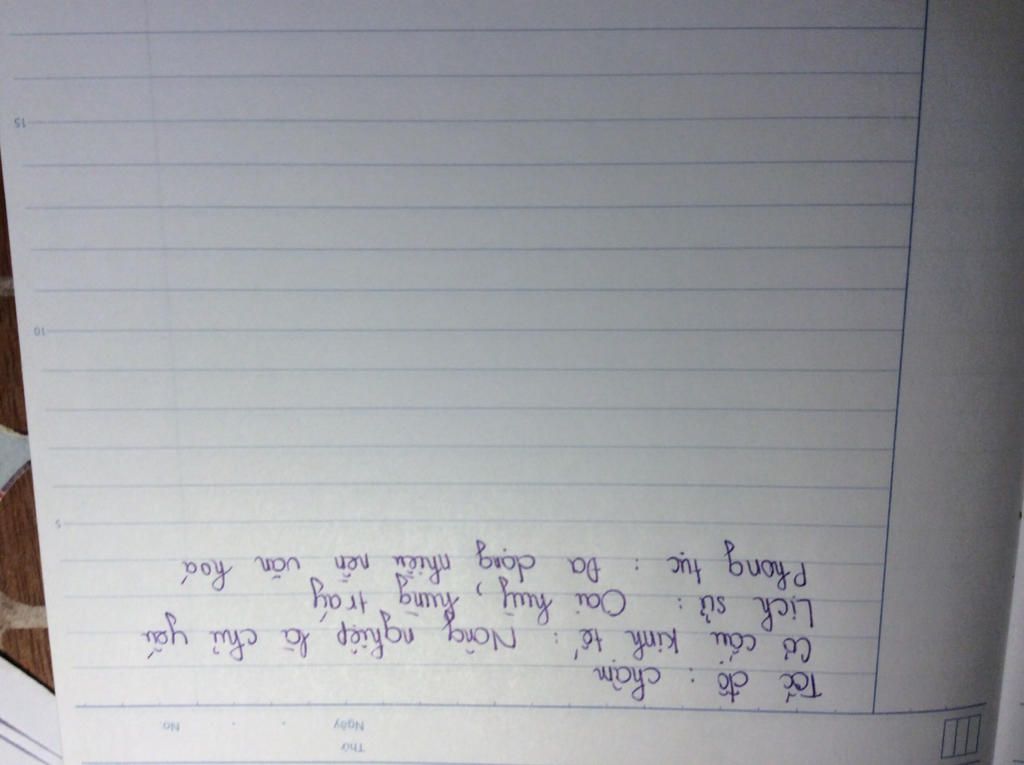 Thứ
Ngày . . . No.
Tốc độ : chậm
Cơ cấu kinh tế : Nông nghiệp là chủ yếu
Lịch sử : Oai huỳ, hùng tráy
Phong tục : Đa dạng nhiều nền văn hoá
5
10
15